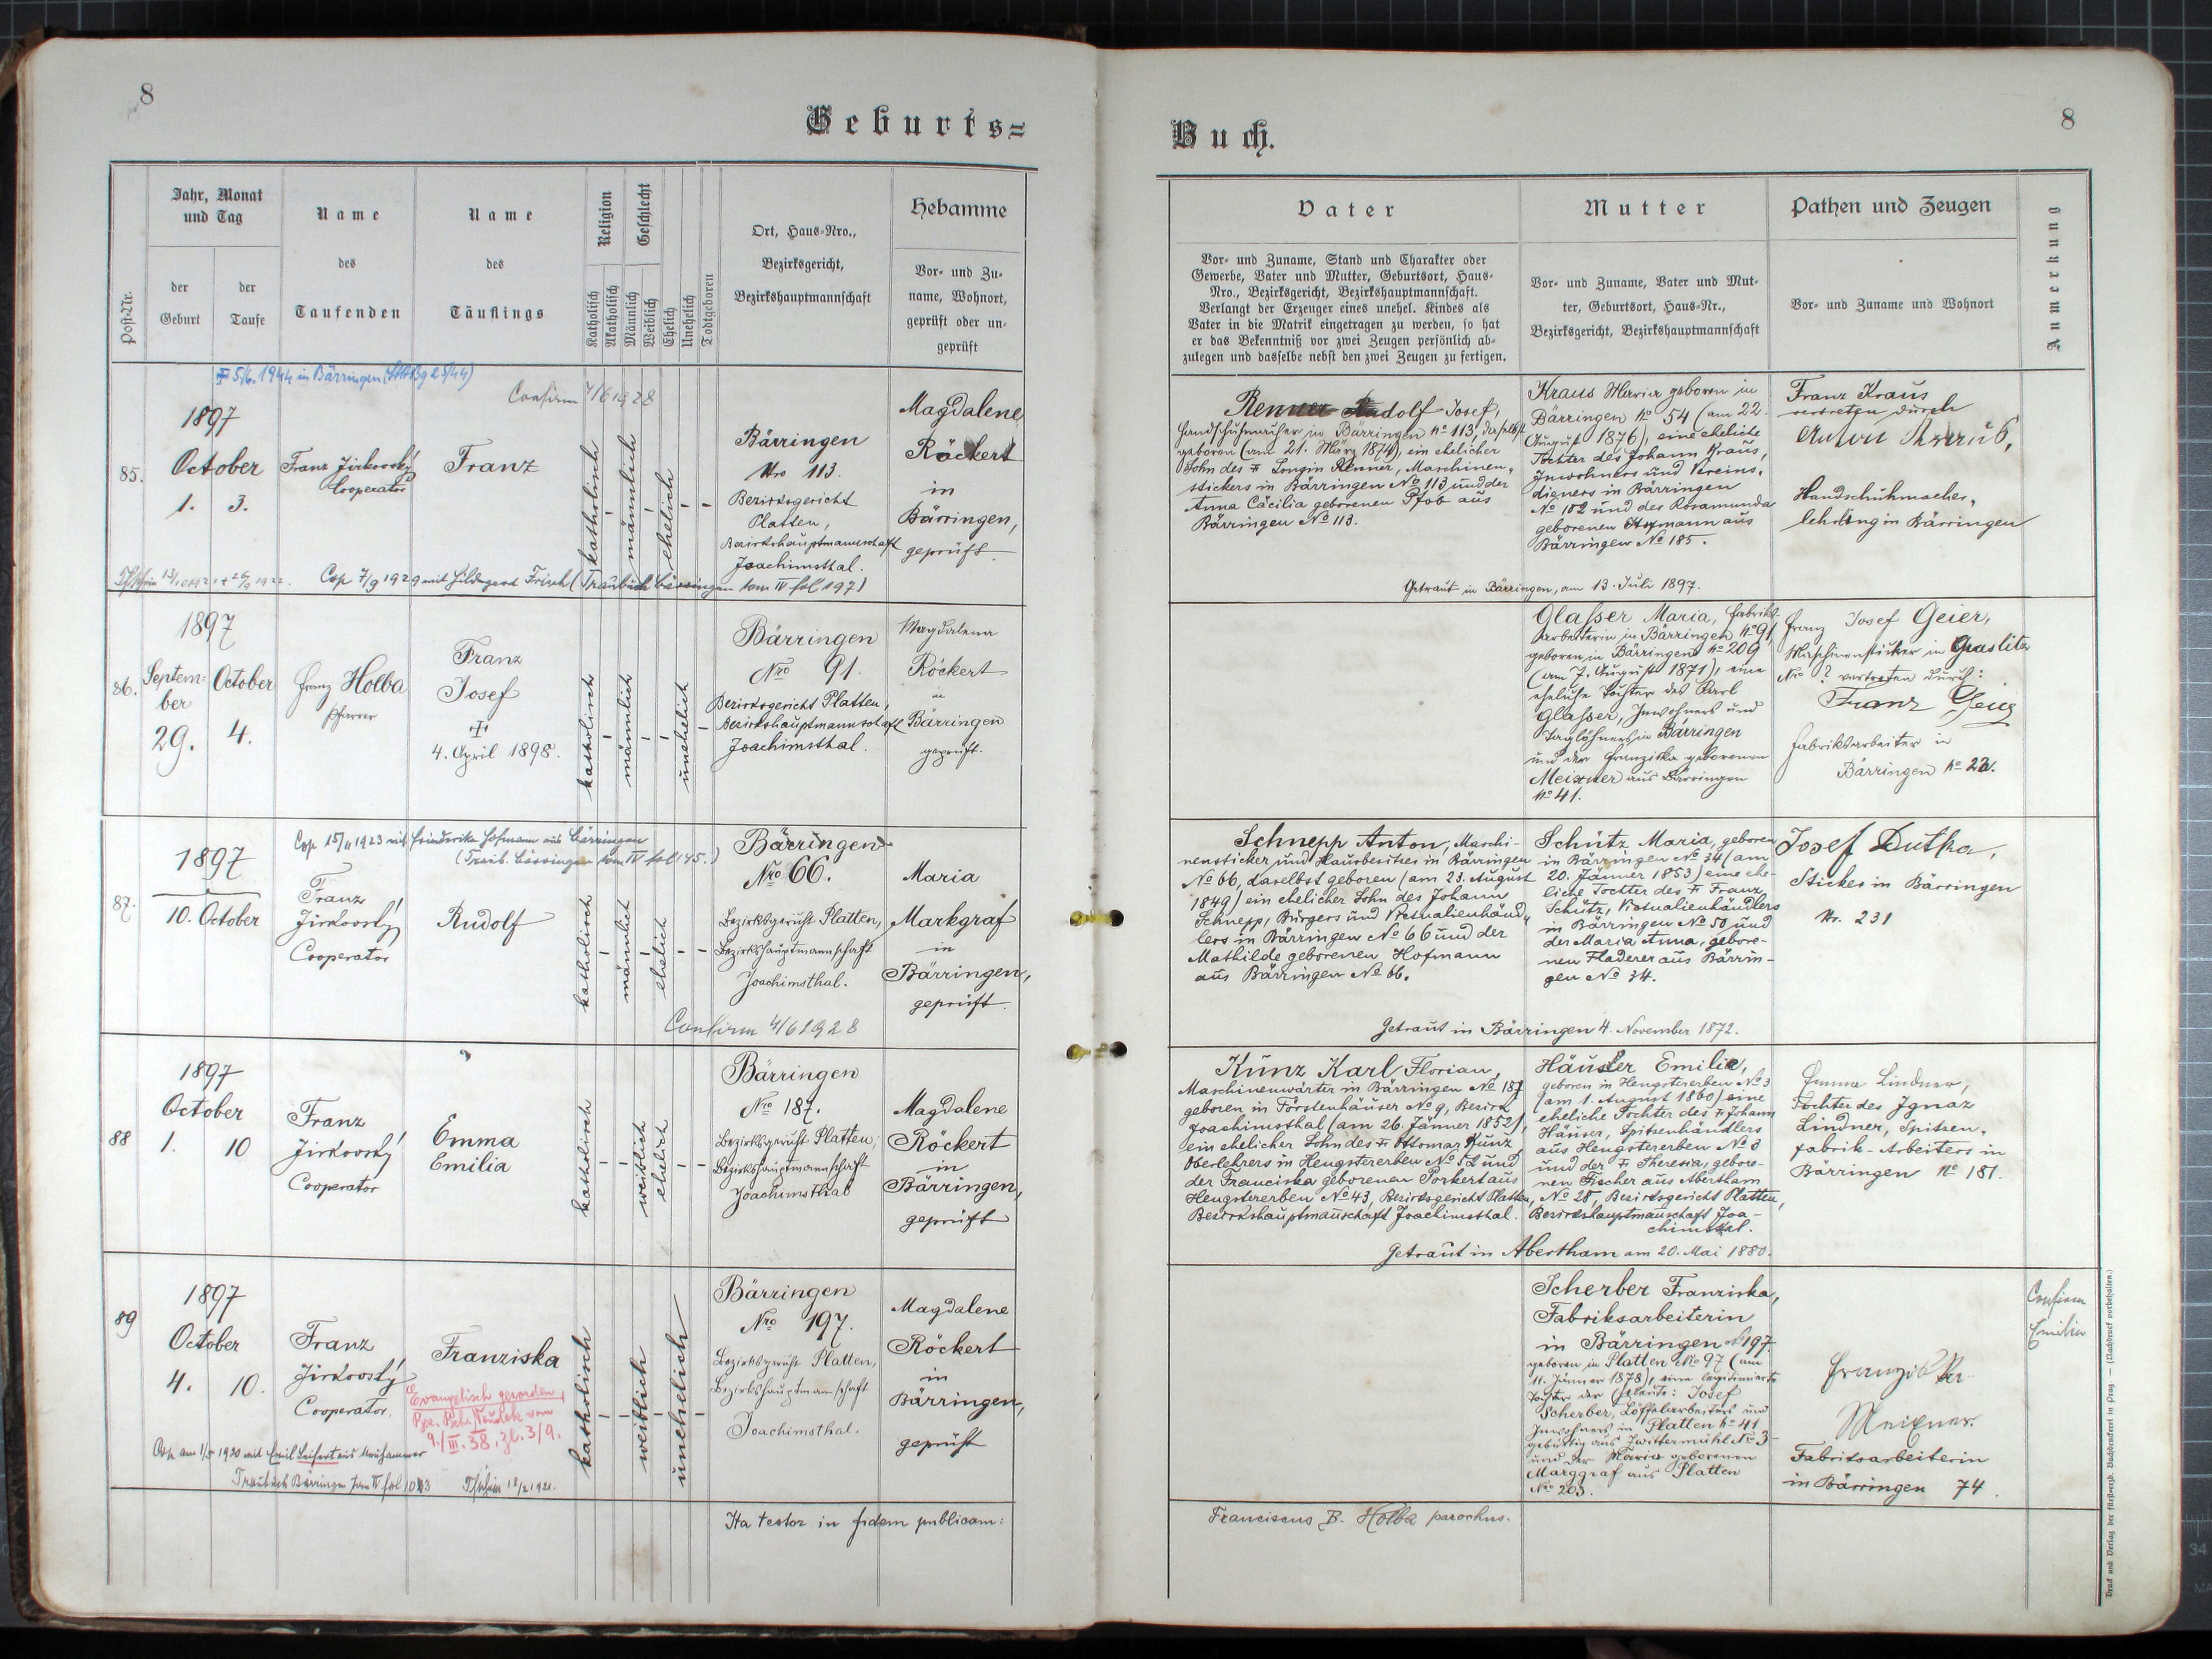 8
Geburts=
Post-Nr.
Jahr, Monat
und Tag
der
Geburt
der
Taufe
Name
des
Taufenden
Name
des
Täuflings
Religion
Katholisch
Akatholisch
Geschlecht
Männlich
Weiblich
Ehelich
Unehelich
Todtgeboren
Ort, Haus-Nro.,
Bezirksgericht,
Bezirkshauptmannschaft
Hebamme
Vor- und Zu-
name, Wohnort,
geprüft oder un-
geprüft
1944 in Bärringen
Confirm 7/6 1928
85.
1897
October
1. 3.
Franz Jirkovský
Cooperator
Franz
katholisch
männlich
ehelich
Bärringen
Nro 113.
Bezirksgericht
Platten,
Bezirkshauptmannschaft
Joachimsthal.
Magdalene
Röckert
in
Bärringen,
geprüft.
Cop 7/9 1929 mit Hildegard Frisch (Traubuch Bärringen tom IV fol 197)
86.
1897
Septem-
ber
29.
October
4.
Franz Holba
Pfarrer
Franz
Josef
4. April 1898.
katholisch
männlich
unehelich
Bärringen
Nro 91.
Bezirksgericht Platten,
Bezirkshauptmannschaft
Joachimsthal.
Magdalena
Röckert
in
Bärringen
geprüft.
Cop 15/11 1923 mit Friederika Hofmann aus Bärringen
(Traub. Bärringen tom IV fol 145.)
87.
1897
10. October
Franz
Jirkovský
Cooperator
Rudolf
katholisch
männlich
ehelich
Bärringen
Nro 66.
Bezirksgericht Platten,
Bezirkshauptmannschaft
Joachimsthal.
Maria
Markgraf
in
Bärringen,
geprüft.
Confirm 4/6 1928
88
1897
October
1. 10
Franz
Jirkovský
Cooperator
Emma
Emilia
katholisch
weiblich
ehelich
Bärringen
Nro 187.
Bezirksgericht Platten,
Bezirkshauptmannschaft
Joachimsthal
Magdalene
Röckert
in
Bärringen,
geprüft
89
1897
October
4. 10.
Franz
Jirkovský
Cooperator.
Franziska
Evangelisch geworden,
Bez. Beh. Neudek vom
9./III. 38, Zl. 3/9.
katholisch
weiblich
unehelich
Bärringen
Nro 197.
Bezirksgericht Platten,
Bezirkshauptmannschaft
Joachimsthal.
Magdalene
Röckert
in
Bärringen,
geprüft
1920 mit Emil Seifert aus Neuhammer
Traubuch Bärringen tom IV fol
Ita testor in fidem publicam:
8
Buch.
Vater
Vor- und Zuname, Stand und Charakter oder
Gewerbe, Vater und Mutter, Geburtsort, Haus-
Nro., Bezirksgericht, Bezirkshauptmannschaft.
Verlangt der Erzeuger eines unehel. Kindes als
Vater in die Matrik eingetragen zu werden, so hat
er das Bekenntniß vor zwei Zeugen persönlich ab-
zulegen und dasselbe nebst den zwei Zeugen zu fertigen.
Mutter
Vor- und Zuname, Vater und Mut-
ter, Geburtsort, Haus-Nr.,
Bezirksgericht, Bezirkshauptmannschaft
Pathen und Zeugen
Vor- und Zuname und Wohnort
Anmerkung
Renner Rudolf Josef,
Handschuhmacher in Bärringen No 113, daselbst
geboren (am 21. März 1874), ein ehelicher
Sohn des Longin Renner, Maschinen-
stickers in Bärringen No 113 und der
Anna Cäcilia geborenen Pfob aus
Bärringen No 113.
Kraus Maria geboren in
Bärringen No 54 (am 22.
August 1876), eine eheliche
Tochter des Johann Kraus,
Inwohners und Vereins-
dieners in Bärringen
No 182 und der Rosamunda
geborenen aus
Bärringen No 185.
Franz Kraus
vertreten durch
Anton
Handschuhmacher-
lehrling in Bärringen
Getraut in Bärringen, am 13. Juli 1897.
Glaßer Maria, Fabriks-
arbeiterin in Bärringen No 91
geboren in Bärringen No 209
(am 7. August 1871), eine
eheliche Tochter des Karl
Glaßer, Inwohners und
Taglöhners in Bärringen
und der Franziska geborenen
Meixner aus Bärringen
No 41.
Franz Josef Geier,
Maschinensticker in Graslitz
Nro ? vertreten durch:
Franz Geier
Fabriksarbeiter in
Bärringen No
Schnepp Anton, Maschi-
nensticker und Hausbesitzer in Bärringen
No 66, daselbst geboren (am 23. August
1849) ein ehelicher Sohn des Johann
Schnepp, Bürgers und Victualienhänd-
lers in Bärringen No 66 und der
Mathilde geborenen Hofmann
aus Bärringen No 66.
Schütz Maria, geboren
in Bärringen No 34 (am
20. Jänner 1853) eine ehe-
liche Tochter des Franz
Schütz, Victualienhändlers
in Bärringen No 50 und
der Maria Anna, gebore-
nen Fladerer aus Bärrin-
gen No 34.
Josef Dutka,
Sticker in Bärringen
Nr. 231
Getraut in Bärringen 4. November 1872.
Kunz Karl Florian,
Maschinenwärter in Bärringen No 187
geboren in Försterhäuser No 9, Bezirk
Joachimsthal (am 26. Jänner 1852),
ein ehelicher Sohn des Ottomar Kunz
Oberlehrers in Hengstererben No 52 und
der Franciska geborenen Porkert aus
Hengstererben No 43, Bezirksgericht Platten,
Bezirkshauptmannschaft Joachimsthal.
Häuser Emilie,
geboren in Hengstererben No 3
(am 1. August 1860) eine
eheliche Tochter des Johann
Häuser, Spitzenhändlers
aus Hengstererben No 3
und der Theresia, gebore-
nen Fischer aus Abertham
No 28, Bezirksgericht Platten,
Bezirkshauptmannschaft Joa-
chimsthal.
Emma Lindner,
Tochter des Ignaz
Lindner, Spitzen-
fabrik-Arbeiters in
Bärringen No 181.
Getraut in Abertham am 20. Mai 1880.
Scherber Franziska,
Fabriksarbeiterin
in Bärringen No 197
geboren in Platten No 97 (am
11. Jänner 1878), eine legitimierte
Tochter der Eheleute: Josef
Scherber, Löffelarbeiters und
Inwohners in Platten No 41
gebürtig aus Zwittermühl No 3
und der Maria geborenen
Marggraf aus Platten
Nro 203.
Franziska
Meixner
Fabriksarbeiterin
in Bärringen 74.
Confirm
Emilia
Franciscus B. Holba parochus.
Druck und Verlag der fürsterzb. Buchdruckerei in Prag. — (Nachdruck vorbehalten.)
34